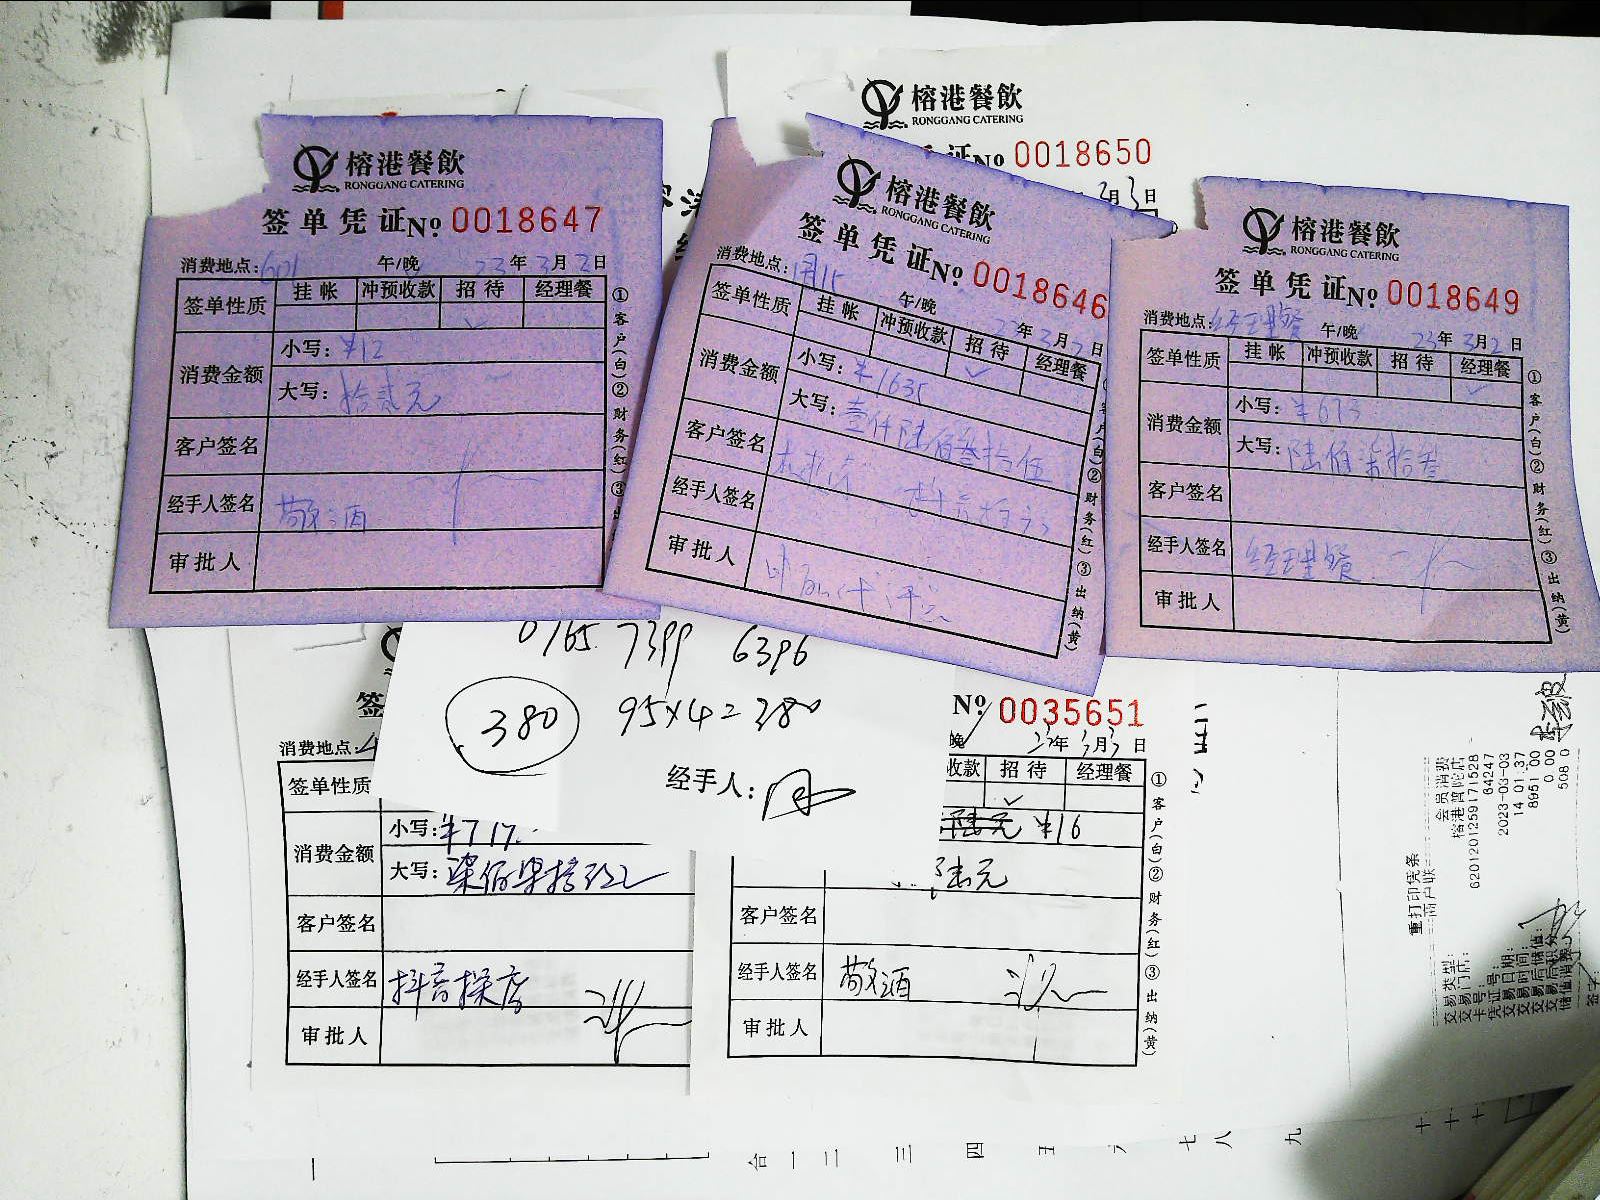 榕港餐飲
RONGGANG CATERING
证№ 0018650
月3日
榕港餐飲
RONGGANG CATERING
签单凭证№ 0018647
消费地点:601 午/晚 23年3月2日
签单性质 挂帐 冲预收款 招待 经理餐
✓
消费金额
小写:¥12
大写:拾贰元
客户签名
经手人签名 敬酒
审批人
①客户(白)②财务(红)③出
榕港餐飲
RONGGANG CATERING
签单凭证№ 0018646
消费地点: 午/晚 23年3月2日
签单性质 挂帐 冲预收款 招待 经理餐
✓
消费金额
小写:¥1635
大写:壹仟陆佰叁拾伍
客户签名
经手人签名
审批人
客户(白)②财务(红)③出纳(黄)
榕港餐飲
RONGGANG CATERING
签单凭证№ 0018649
消费地点:经理餐 午/晚 23年3月2日
签单性质 挂帐 冲预收款 招待 经理餐
✓
消费金额
小写:¥673
大写:陆佰柒拾叁
客户签名
经手人签名 经理餐
审批人
①客户(白)②财务(红)③出纳(黄)
0165. 7399 6396
380 95×4=380
经手人:
签
消费地点:
签单性质
消费金额
小写:¥717.
大写:
客户签名
经手人签名 抖音探店
审批人
№ 0035651
晚 23年3月3日
收款 招待 经理餐
✓
¥16
陆元
客户签名
经手人签名 敬酒
审批人
①客户(白)②财务(红)③出纳(黄)
重打印凭条
商户联
交易类型: 会员消费
交易门店: 榕港普陀店
卡号: 6201201259171528
凭证号: 84247
交易日期: 2023-03-03
交易时间: 14 01 37
交易后储值: 8951 00
交易后积分: 0 00
储值消费: 508 0
签字
一
合 一 二 三 四 五 六 七 八 九 十